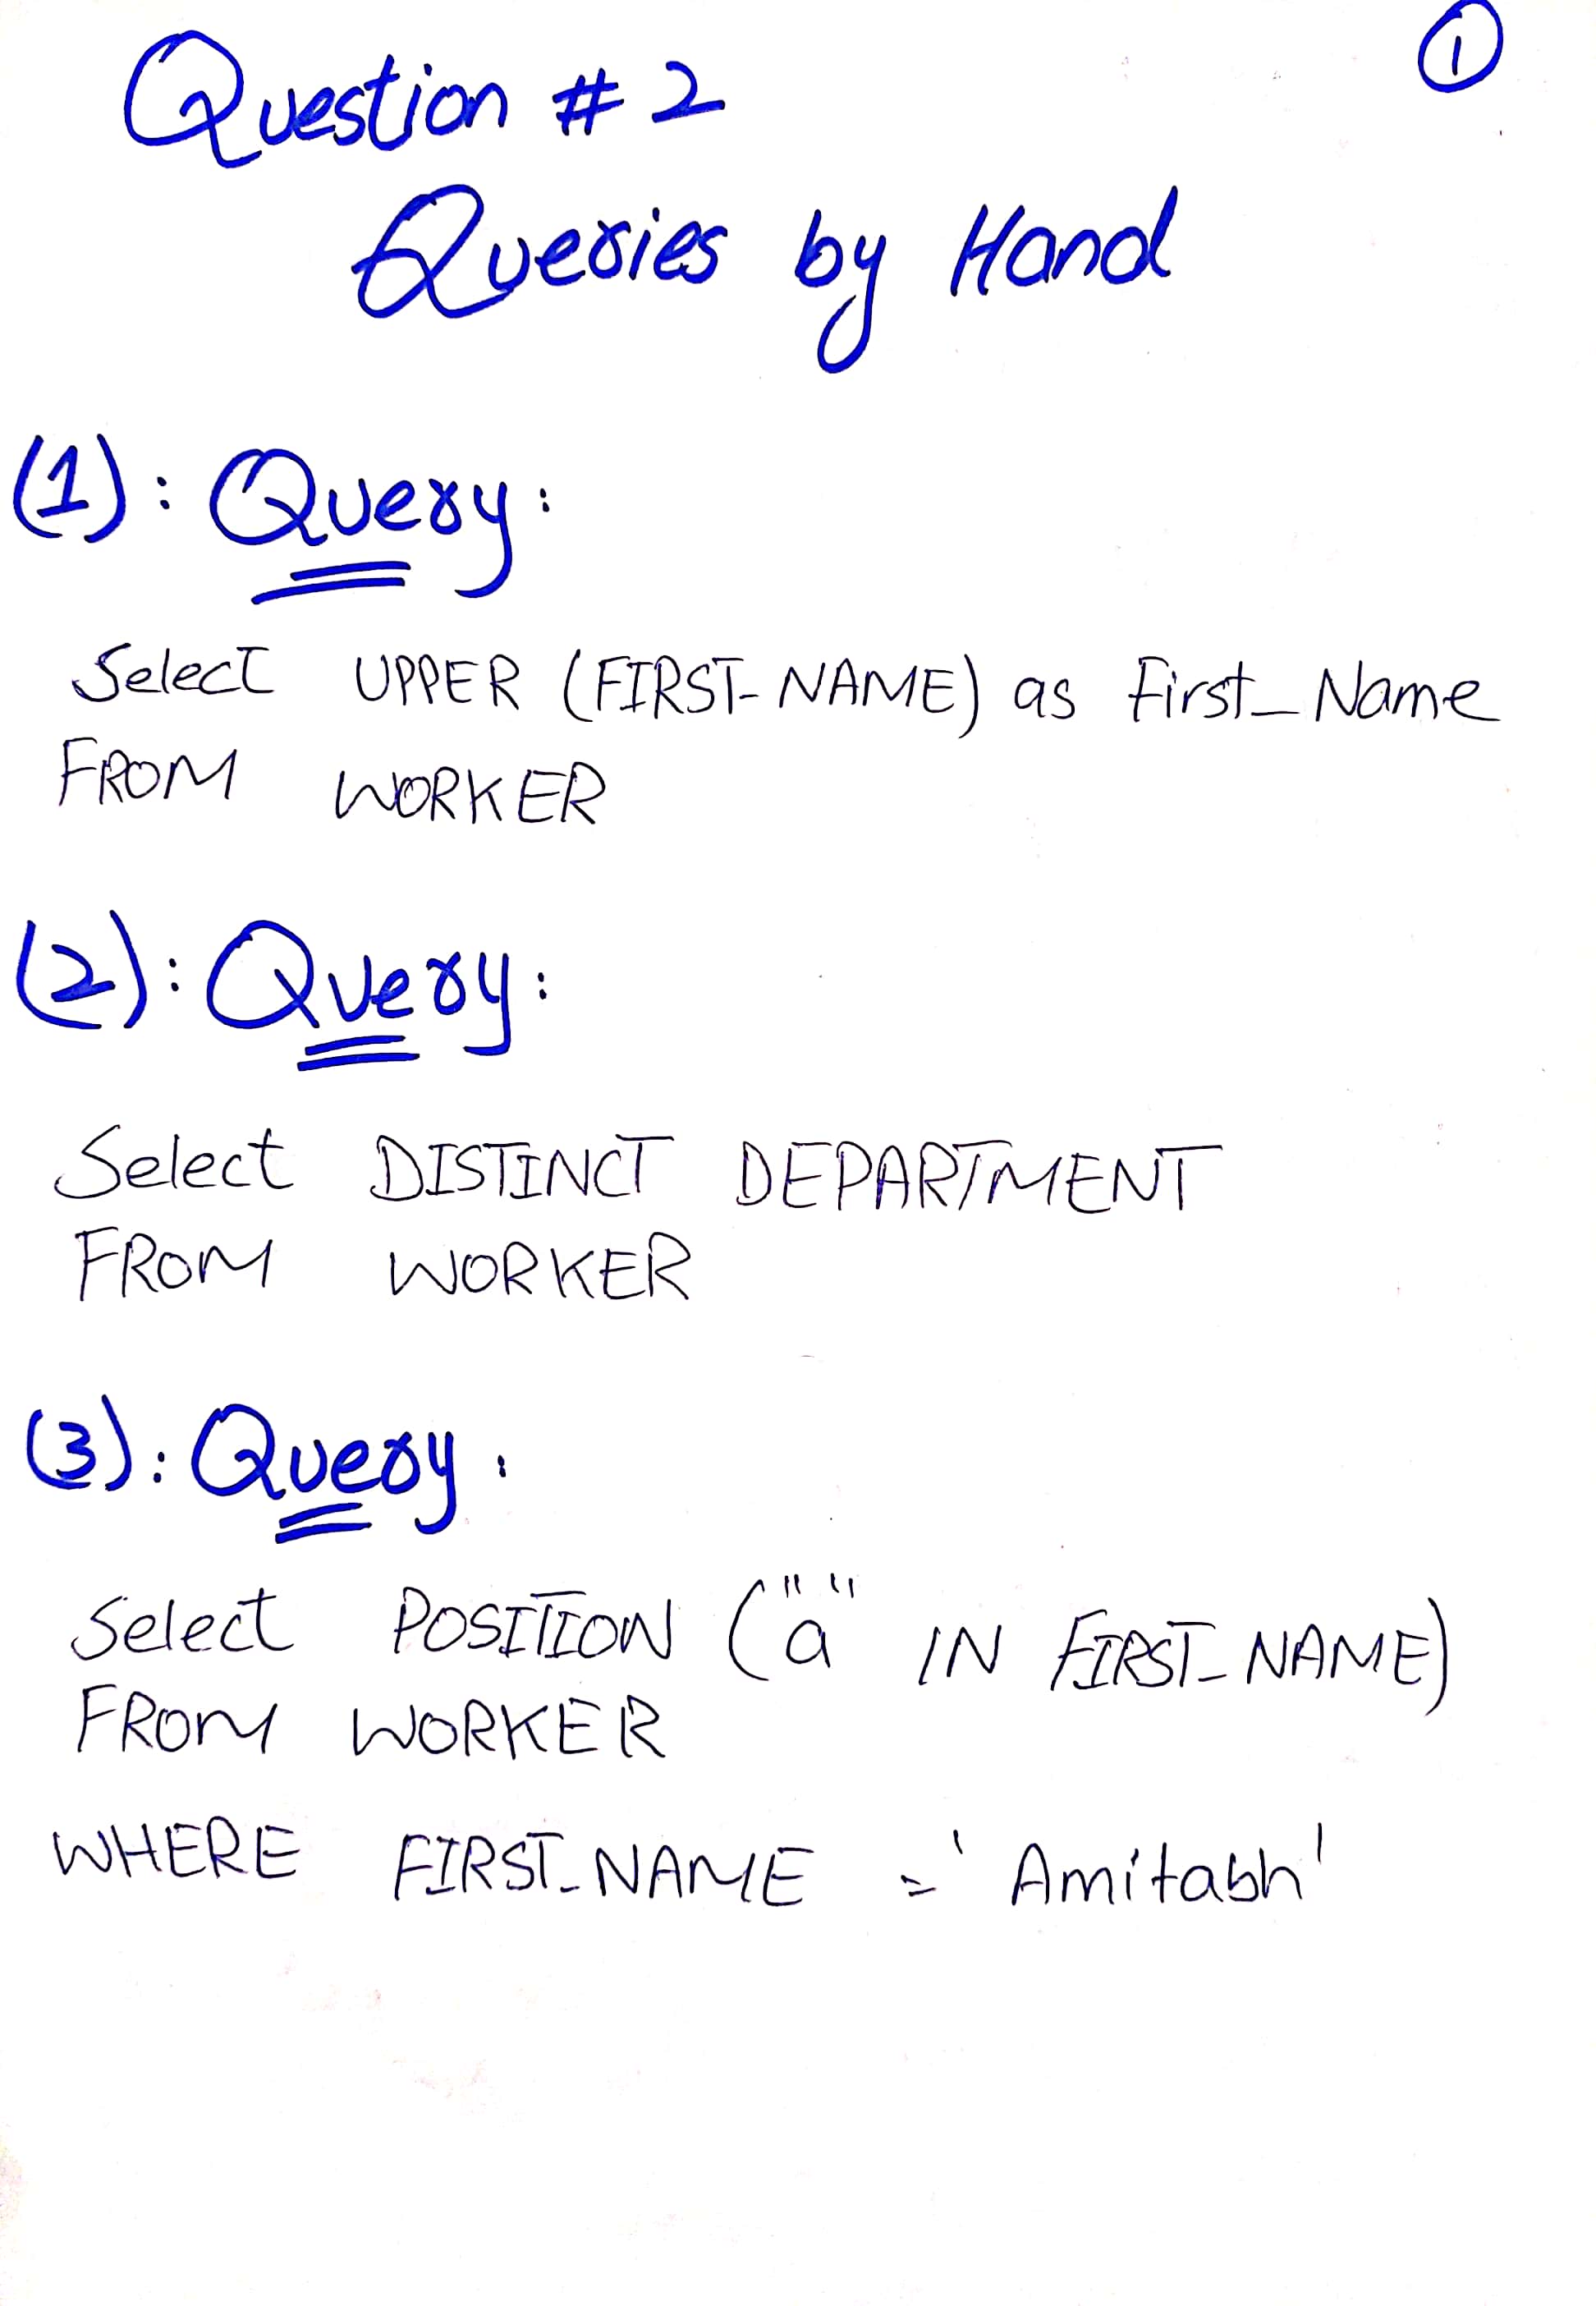 1
Question # 2
Queries by Hand
(1): Query:
Select UPPER (FIRST_NAME) as First_Name
FROM WORKER
(2): Query:
Select DISTINCT DEPARTMENT
FROM WORKER
(3): Query:
Select POSITION ("a" IN FIRST_NAME)
FROM WORKER
WHERE FIRST_NAME = 'Amitabh'